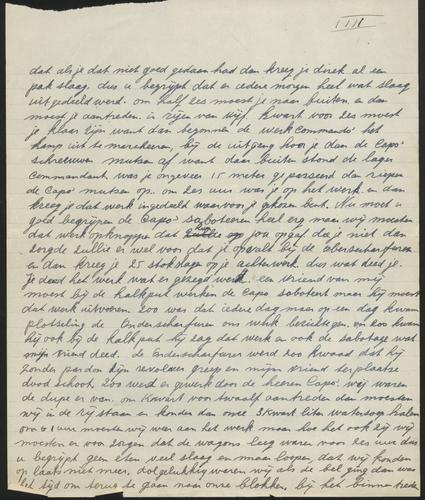 IIII
dat als je dat niet goed gedaan had dan kreeg je direk al een
pak slaag. dus u begrijpt dat er iedere morgen heel wat slaag
uitgedeeld werd. om half zes moest je naar buiten en dan
moest je aantreden. in rijen van vijf. kwart voor zes moest
je klaar zijn want dan begonnen de werk commando's het
kamp uit te marcheren, bij de uitgang hoor je dan de Capo's
schreeuwen mutsen af want daar buiten stond de lager
Commandant. was je ongeveer 15 meter gepasseerd dan riepen
de Capo's mutsen op. om zes uur was je op het werk en dan
kreeg je dat werk ingedeeld waarvoor je gekozen bent. Nu moet u
goed begrijpen de Capo's saboteren heel erg maar wij moesten
dat werk opknappen dat zij jou opgaf. dee je niet dan
zorgde zullie er wel voor dat je opvalt bij de Oberscharfurer
en dan kreeg je 25 stokslagen op je achterwerk. dus wat deed je.
Je deed het werk wat er gezegd werdt. een vriend van mij
moest bij de kalkput werken de Capo saboteert maar hij moest
dat werk uitvoeren. zoo was dat iedere dag maar op een dag kwam
plotseling de Onderscharfurer ons werk bezichtigen. en zoo kwam
hij ook bij de kalkput hij zag dat werk en ook de sabotage wat
mijn vriend deed. de Onderscharfurer werd zoo kwaad dat hij
zonder pardon zijn revolver greep en mijn vriend terplaatse
dood schoot. Zoo werd er gewerk door de heeren Capo's. wij waren
de dupe er van. om Kwart voor twaalf aantreden dan moesten
wij in de rij staan en konden dan onze 3 kwart liter watersoep halen
om 1 uur moesten wij weer aan het werk maar hoe het ook zij wij
moesten er voor zorgen dat de wagons leeg waren voor zes uur dus
u begrijpt geen eten veel slaag en maar loopen, dat wij konden
op laats niet meer, dolgelukkig waren wij als de bel ging dan was
het tijd om terug te gaan naar onze blokken, bij het binnentreden